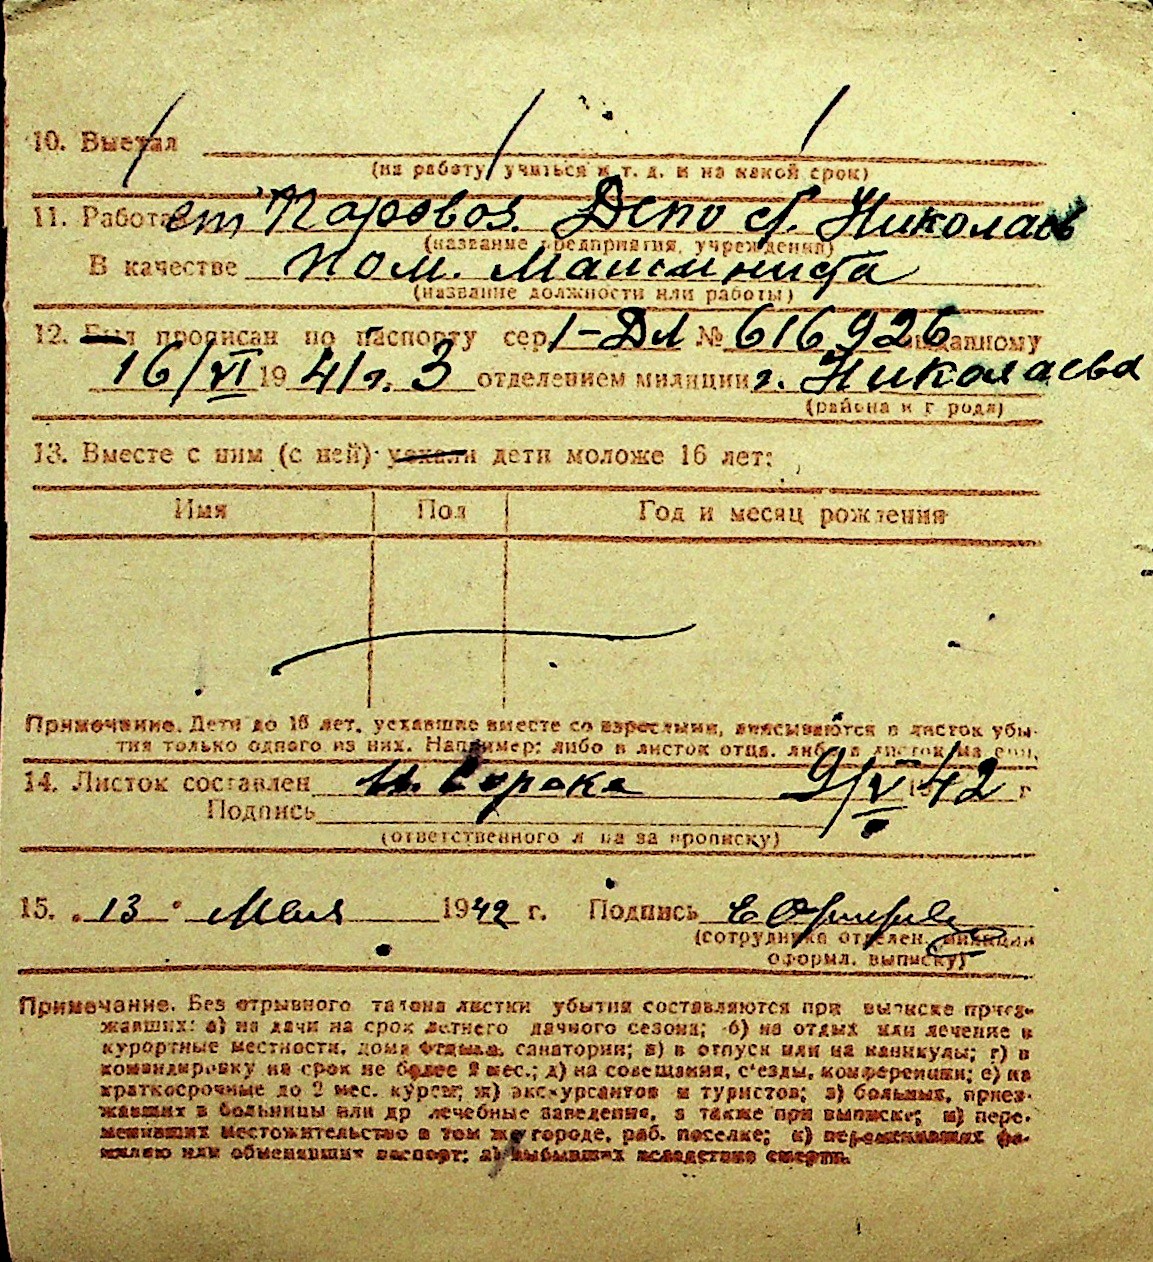 10. Выехал
(на работу, учиться и т. д. и на какой срок)
11. Работает Паровоз. Депо ст. Николаев
(название предприятия, учреждения)
В качестве пом. машиниста
(название должности или работы)
12. Был прописан по паспорту сер. I-ДЛ № 616926 выданному
16/VI 1941 г. 3 отделением милиции г. Николаева
(района и города)
13. Вместе с ним (с ней) уехали дети моложе 16 лет:
Имя Пол Год и месяц рождения
Примечание. Дети до 16 лет, уехавшие вместе со взрослыми, вписываются в листок убы-
тия только одного из них. Например: либо в листок отца, либо в листок матери.
14. Листок составлен 9/V 1942 г
Подпись
(ответственного лица за прописку)
15. „13" Мая 1942 г. Подпись
(сотрудника отделен. милиции
оформл. выписку)
Примечание. Без отрывного талона листки убытия составляются при выписке приез-
жавших: а) на дачи на срок летнего дачного сезона; б) на отдых или лечение в
курортные местности, дома отдыха, санатории; в) в отпуск или на каникулы; г) в
командировку на срок не более 2 мес.; д) на совещания, с'езды, конференции; е) на
краткосрочные до 2 мес. курсы; ж) экскурсантов и туристов; з) больных, приез-
жавших в больницы или др лечебные заведения, а также при выписке; и) пере-
менивших местожительство в том же городе, раб. поселке; к) переменивших фа-
милию или обменявших паспорт; л) выбывших вследствие смерти.